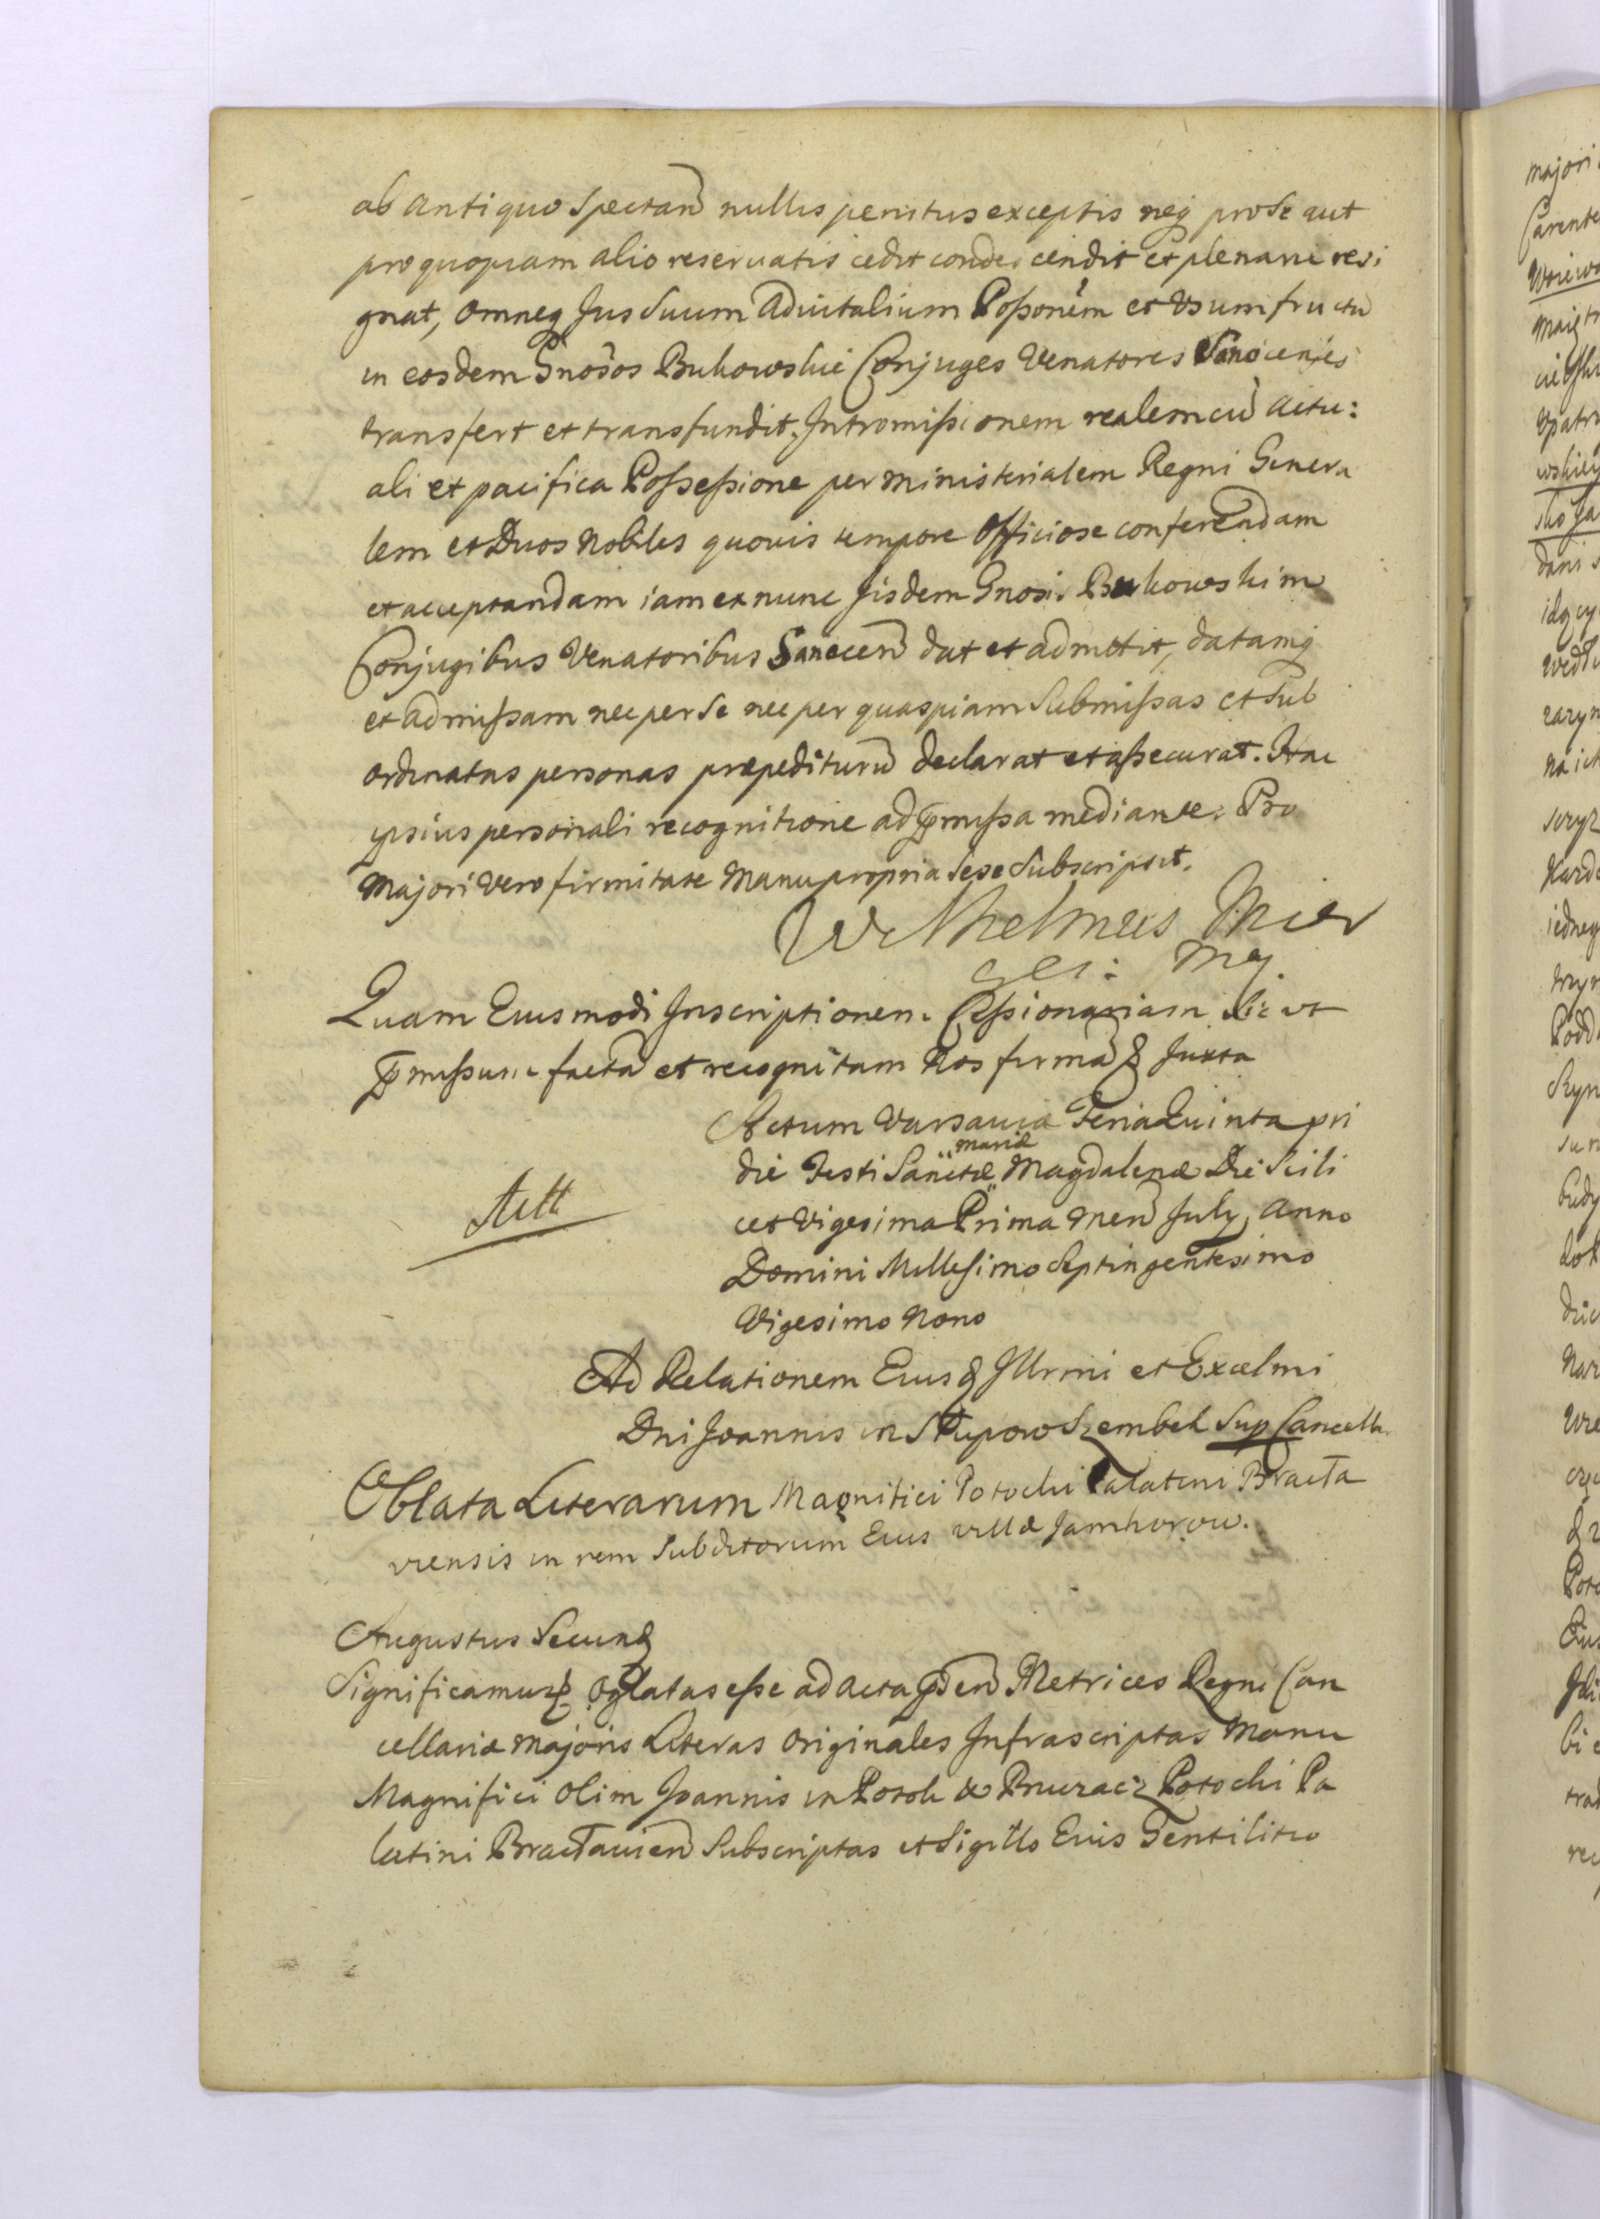 ab antiquo spectan nullis penitus exceptis neq pro se aut
pro quopiam alio reservatis cedit condescendit et plenarie resi
gnat, omneq Jus suum advitalium Possonem et Usumfructu
in eosdem Gnosos Bukowskie Conjuges Venatores Sanocenses
transfert et transfundit. Intromissionem realem cu actu:
ali et pacifica Possessione per ministerialem Regni Genera
lem et Duos Nobiles quovis tempore officiose conferendam
et acceptandam iam ex nunc Jisdem Gnosis Bukowskim
Conjugibus Venatoribus Sanocen dat et admittit, datamq
et admissam nec per se nec per quaspiam submissas et sub
ordinatas personas præpedituru declarat et assecurat. Hac
ipsius personali recognitione ad pmissa mediante. Pro
Majori Vero firmitate Manu propria sese subscripsit.
Wilhelmus Mier
Quam Eiusmodi Inscriptionem Cessionariam sic ut
pmissum facta et recognitam Nos firma & Juxta
Actum Varsaviæ Feria Quinta pri
die Festi Sanctæ Mariæ Magdalenæ Die Scili
cet Vigesima Prima Men July Anno
Domini Millesimo Septingentesimo
Vigesimo Nono
Ad Relationem Eius & Illrmi et Excelmi
Dni Joannis in Słupow Szembek Sup Cancell
Oblata Literarum Magnifici Potocki Palatini Bracła
viensis in rem Subditorum Eius villæ Jamhorow.
Augustus Secun
Significamus & Oblatas esse ad acta pden Metrices Regni Can
cellariæ Majoris Literas Originales Infrascriptas Manu
Magnifici olim Joannis in Potok & Potocki Pa
latini Bracłavien Subscriptas et Sigillo Eius Gentilitio